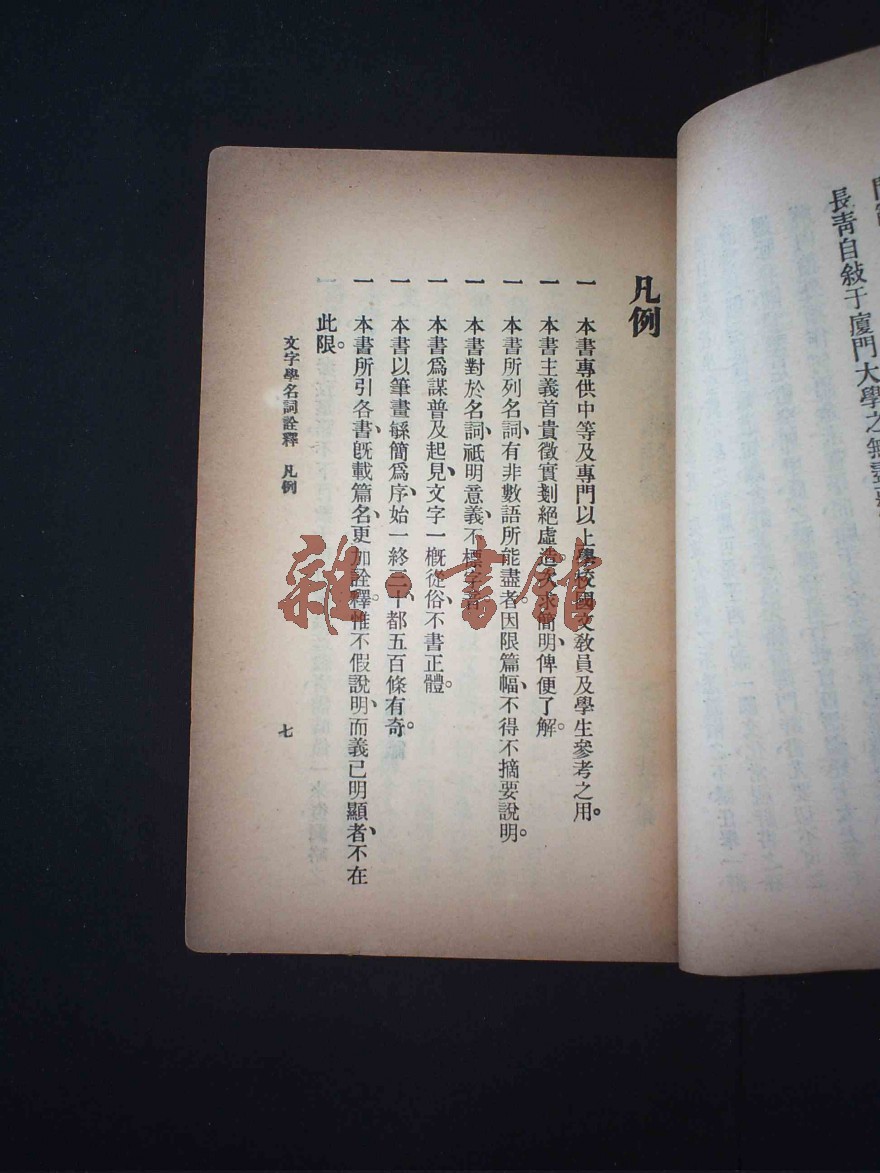 長青自敍于廈門大學之無盡
凡例
一 本書專供中等及專門以上學校國文敎員及學生參考之用。
一 本書主義首貴徵實剗絕虛造次求簡明、俾便了解。
一 本書所列名詞、有非數語所能盡者。因限篇幅、不得不摘要說明。
一 本書對於名詞、祇明意義、不標字音。
一 本書爲謀普及起見、文字一槪從俗、不書正體。
一 本書以筆畫繇簡爲序、始一終三十、都五百條有奇。
一 本書所引各書、旣載篇名、更加詮釋。惟不假說明、而義已明顯者、不在
此限。
文字學名詞詮釋 凡例
七
雜·書館